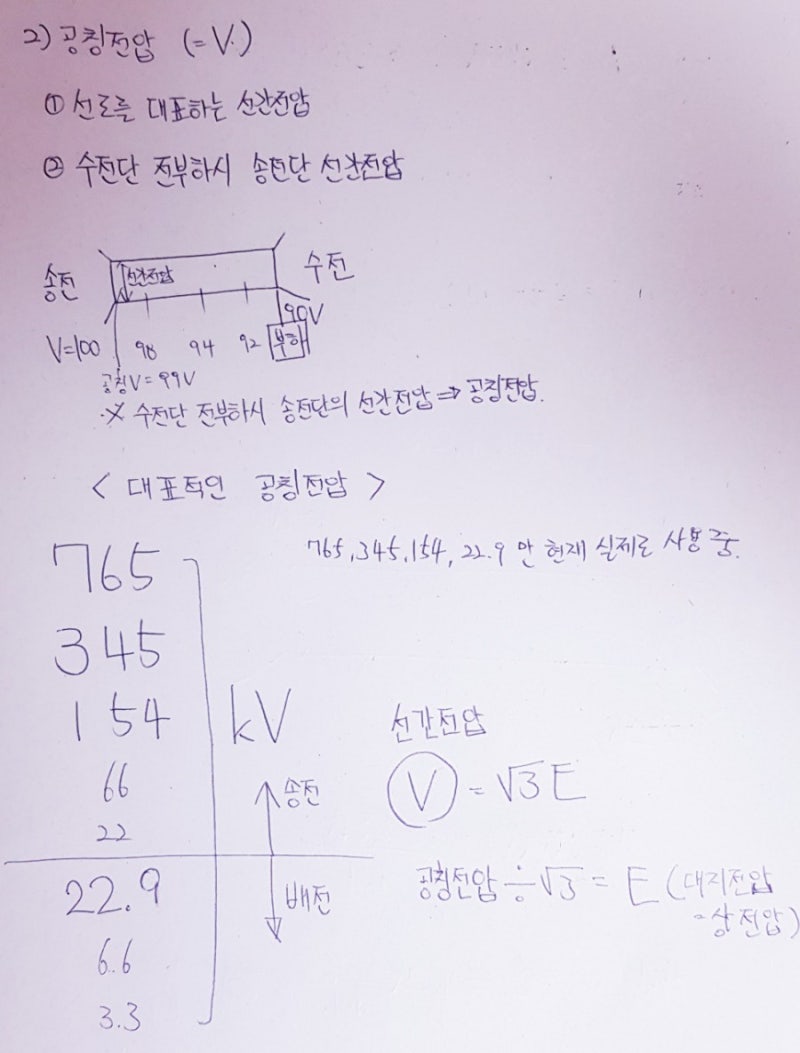 2) 공칭전압 (= V.)
① 선로를 대표하는 선간전압
② 수전단 전부하시 송전단 선간전압
송전 선간전압 수전
90V
V=100 98 94 92 부하
공칭V = 99V
※ 수전단 전부하시 송전단의 선간전압 ⇒ 공칭전압.
< 대표적인 공칭전압 >
765, 345, 154, 22.9 만 현재 실제로 사용 중.
765
345
154 kV
66
22
송전
22.9
배전
6.6
3.3
선간전압
V = √3 E
공칭전압 ÷ √3 = E (대지전압
= 상전압)